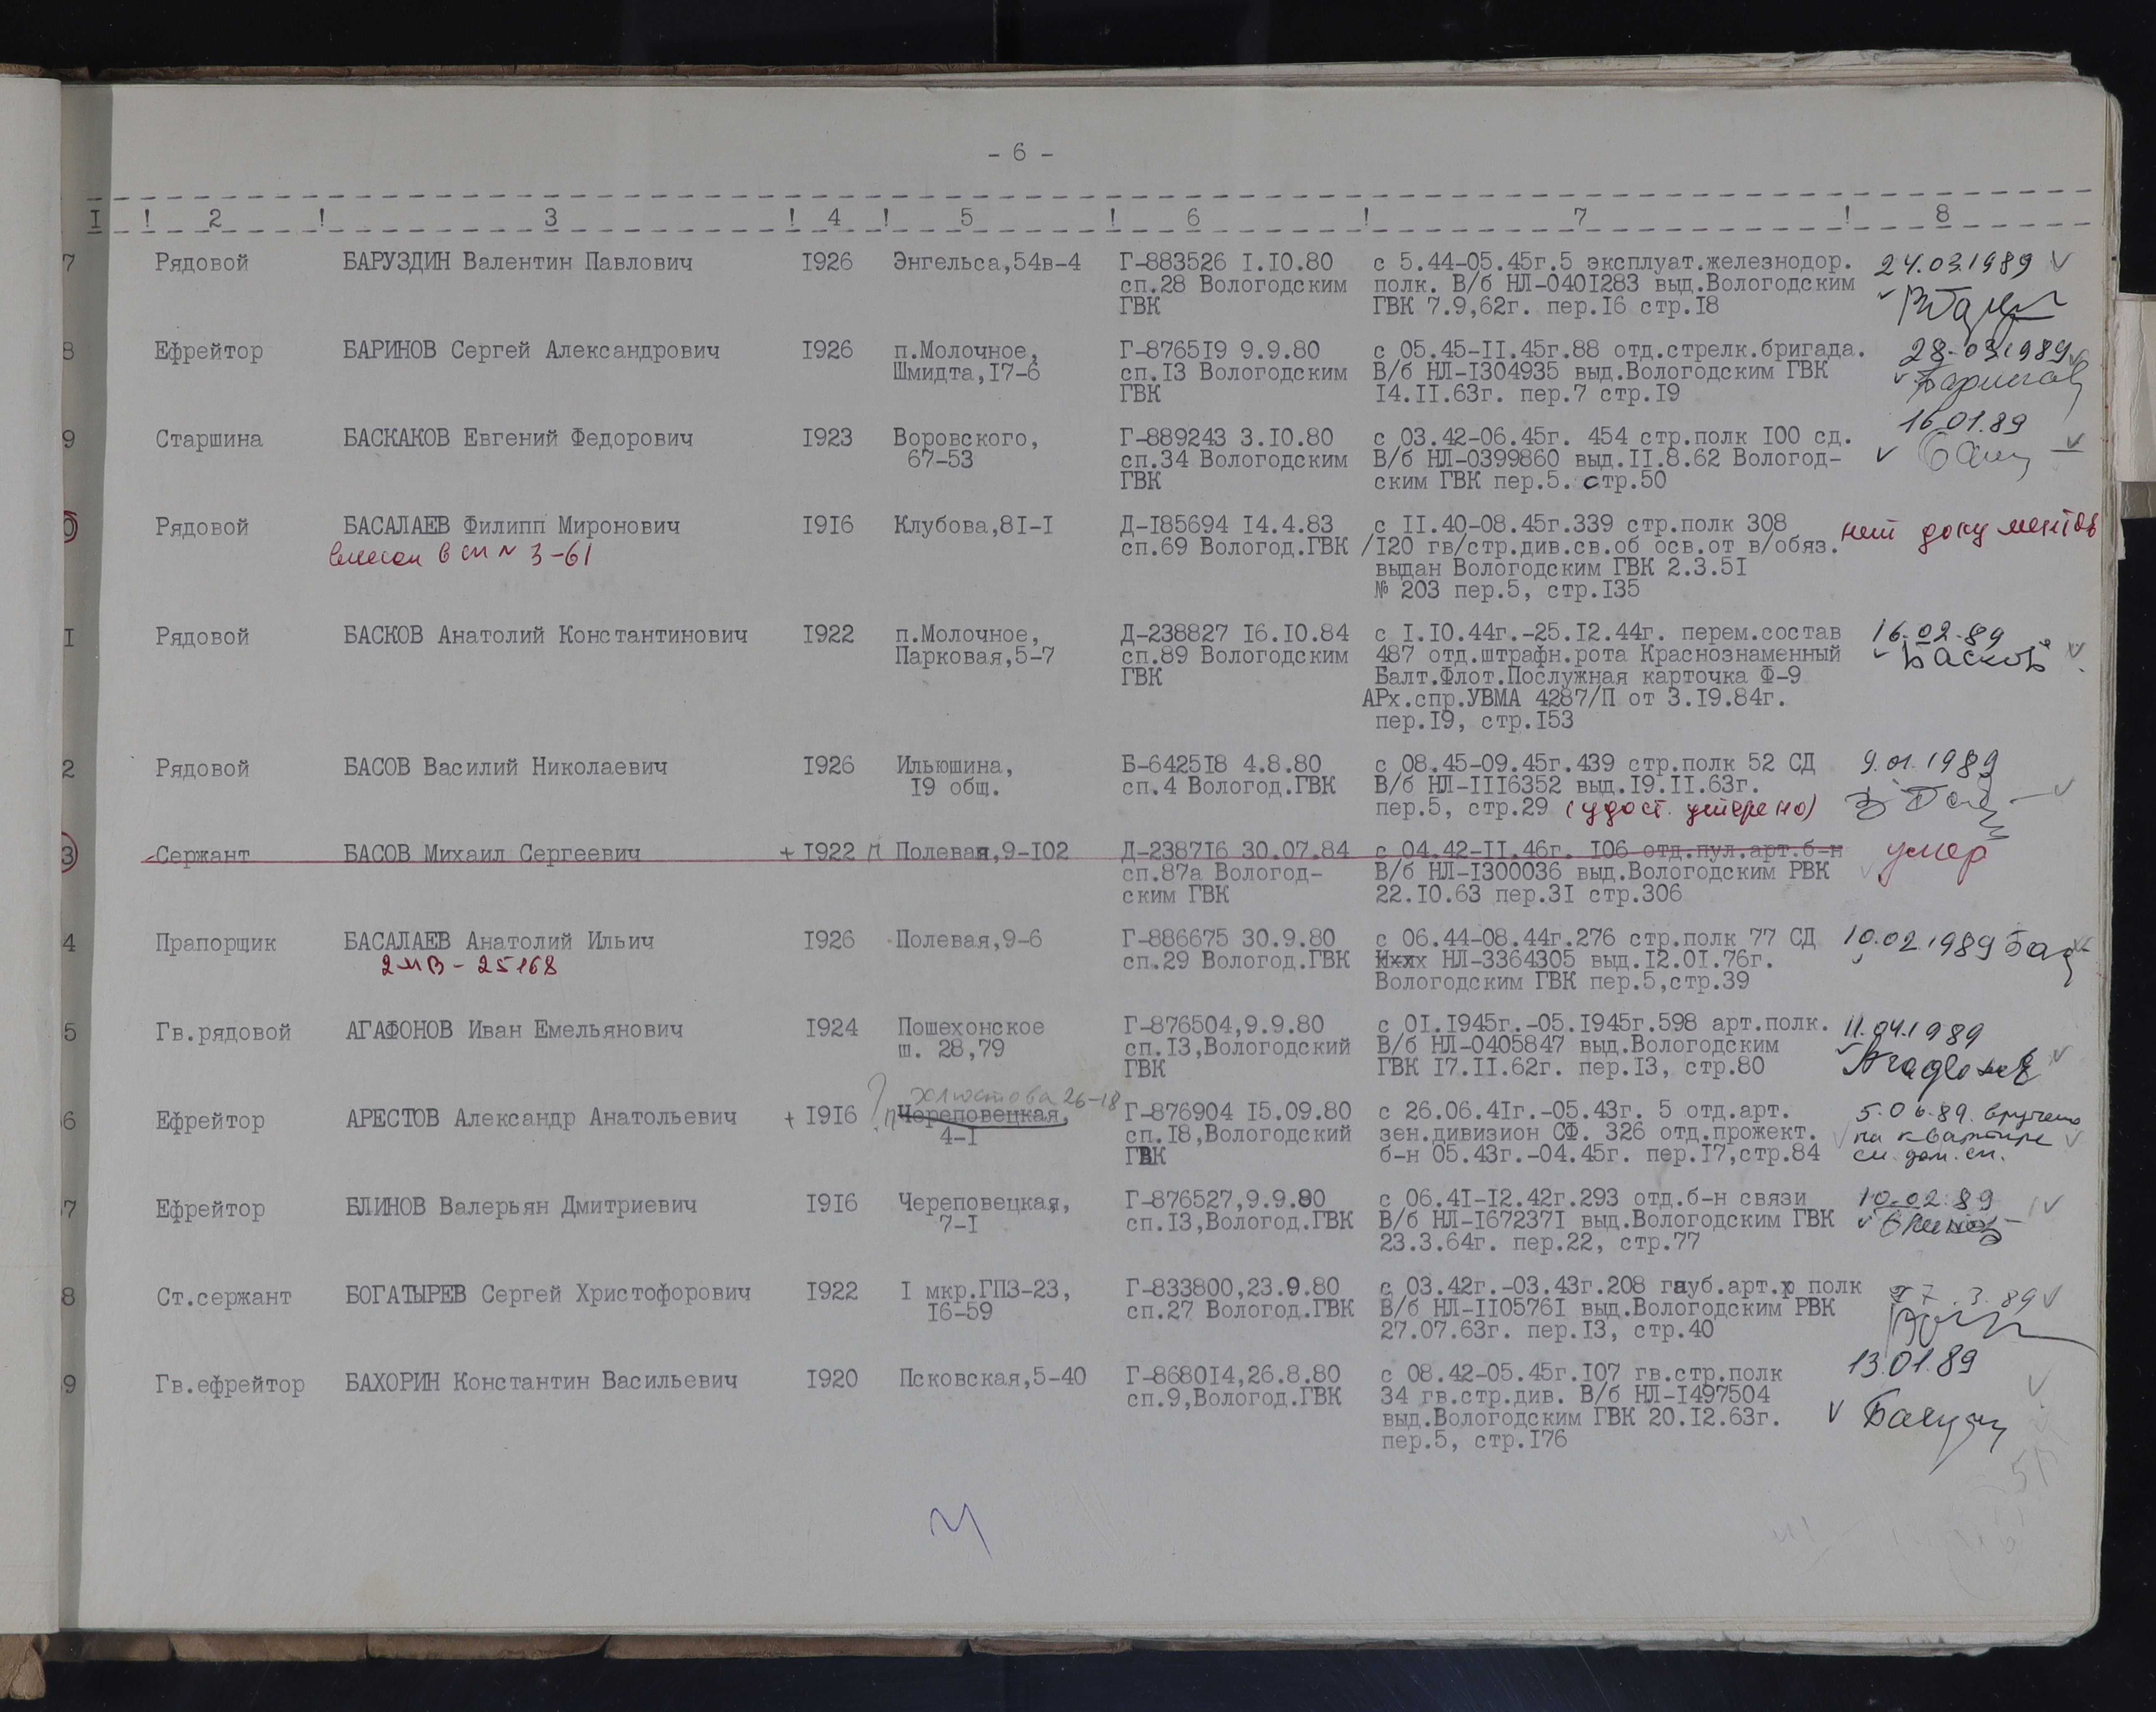 - 6 -
I ! 2 ! 3 ! 4 ! 5 ! 6 ! 7 ! 8
7 Рядовой БАРУЗДИН Валентин Павлович I926 Энгельса,54в-4 Г-883526 I.I0.80 с 5.44-05.45г.5 эксплуат.железнодор. 24.03.1989
сп.28 Вологодским полк. В/б НЛ-040I283 выд.Вологодским
ГВК ГВК 7.9,62г. пер.I6 стр.I8
8 Ефрейтор БАРИНОВ Сергей Александрович I926 п.Молочное, Г-8765I9 9.9.80 с 05.45-II.45г.88 отд.стрелк.бригада. 28.03.1989
Шмидта,I7-6 сп.I3 Вологодским В/б НЛ-I304935 выд.Вологодским ГВК Баринов
ГВК I4.II.63г. пер.7 стр.I9
9 Старшина БАСКАКОВ Евгений Федорович I923 Воровского, Г-889243 3.I0.80 с 03.42-06.45г. 454 стр.полк I00 сд. 16.01.89
67-53 сп.34 Вологодским В/б НЛ-0399860 выд.II.8.62 Вологод-
ГВК ским ГВК пер.5. стр.50
0 Рядовой БАСАЛАЕВ Филипп Миронович I9I6 Клубова,8I-I Д-I85694 I4.4.83 с II.40-08.45г.339 стр.полк 308 нет документов
в сп № 3-61 сп.69 Вологод.ГВК /I20 гв/стр.див.св.об осв.от в/обяз.
выдан Вологодским ГВК 2.3.5I
№ 203 пер.5, стр.I35
I Рядовой БАСКОВ Анатолий Константинович I922 п.Молочное, Д-238827 I6.I0.84 с I.I0.44г.-25.I2.44г. перем.состав 16.02.89
Парковая,5-7 сп.89 Вологодским 487 отд.штрафн.рота Краснознаменный Басков
ГВК Балт.Флот.Послужная карточка Ф-9
АРх.спр.УВМА 4287/П от 3.I9.84г.
пер.I9, стр.I53
2 Рядовой БАСОВ Василий Николаевич I926 Ильюшина, Б-6425I8 4.8.80 с 08.45-09.45г.439 стр.полк 52 СД 9.01.1989
I9 общ. сп.4 Вологод.ГВК В/б НЛ-III6352 выд.I9.II.63г.
пер.5, стр.29 (удост. утеряно)
3 Сержант БАСОВ Михаил Сергеевич + I922 П Полевая,9-I02 Д-2387I6 30.07.84 с 04.42-II.46г. I06 отд.пул.арт.б-н умер
сп.87а Вологод- В/б НЛ-I300036 выд.Вологодским РВК
ским ГВК 22.I0.63 пер.3I стр.306
4 Прапорщик БАСАЛАЕВ Анатолий Ильич I926 Полевая,9-6 Г-886675 30.9.80 с 06.44-08.44г.276 стр.полк 77 СД 10.02.1989 Бас
2 МВ - 25168 сп.29 Вологод.ГВК НЛ-3364305 выд.I2.0I.76г.
Вологодским ГВК пер.5,стр.39
5 Гв.рядовой АГАФОНОВ Иван Емельянович I924 Пошехонское Г-876504,9.9.80 с 0I.I945г.-05.I945г.598 арт.полк. 11.04.1989
ш. 28,79 сп.I3,Вологодский В/б НЛ-0405847 выд.Вологодским Агафонов
ГВК ГВК I7.II.62г. пер.I3, стр.80
? 26-18
6 Ефрейтор АРЕСТОВ Александр Анатольевич + I9I6 П Череповецкая, Г-876904 I5.09.80 с 26.06.4Iг.-05.43г. 5 отд.арт. 5.06.89. вручено
4-I сп.I8,Вологодский зен.дивизион СФ. 326 отд.прожект. на квартире
ГВК б-н 05.43г.-04.45г. пер.I7,стр.84 см. доп. сп.
7 Ефрейтор БЛИНОВ Валерьян Дмитриевич I9I6 Череповецкая, Г-876527,9.9.80 с 06.4I-I2.42г.293 отд.б-н связи 10.02.89
7-I сп.I3,Вологод.ГВК В/б НЛ-I67237I выд.Вологодским ГВК Блинов
23.3.64г. пер.22, стр.77
8 Ст.сержант БОГАТЫРЕВ Сергей Христофорович I922 I мкр.ГПЗ-23, Г-833800,23.9.80 с 03.42г.-03.43г.208 гауб.арт.р полк 7.3.89
I6-59 сп.27 Вологод.ГВК В/б НЛ-II0576I выд.Вологодским РВК
27.07.63г. пер.I3, стр.40
9 Гв.ефрейтор БАХОРИН Константин Васильевич I920 Псковская,5-40 Г-8680I4,26.8.80 с 08.42-05.45г.I07 гв.стр.полк 13.01.89
сп.9,Вологод.ГВК 34 гв.стр.див. В/б НЛ-I497504
выд.Вологодским ГВК 20.I2.63г.
пер.5, стр.I76